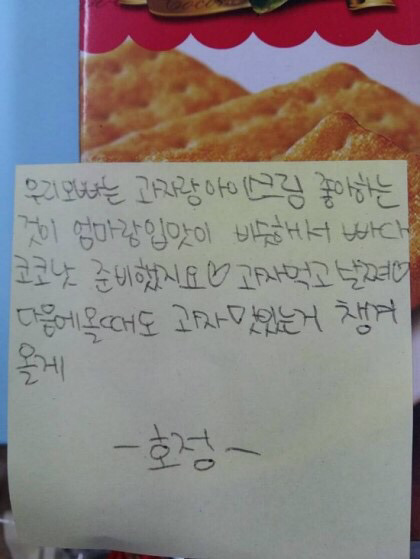 우리오빠는 과자랑아이스크림 좋아하는
것이 엄마랑입맛이 비슷해서 빠다
코코낫 준비했지요♡ 과자먹고 살쪄♡
다음에올때도 과자 맛있는거 챙겨
올게
-호정-